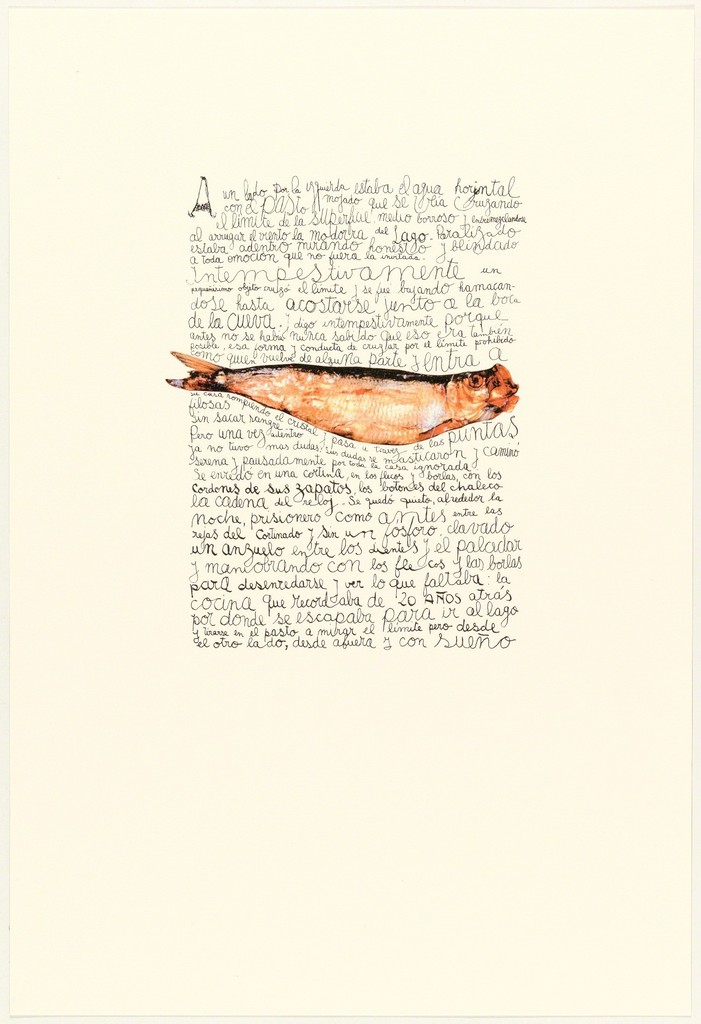 A un lado por la izquierda estaba el agua horizontal
con el pasto mojado que se veia cruzando
el limite de la superficie medio borroso y entremezclandose
al arrugar el viento la modorra del lago. Paralizado
estaba adentro mirando honesto y blindado
a toda emocion que no fuera la invitada.
Intempestivamente un
pequeñisimo objeto cruzó el limite y se fue bajando hamacan-
dose hasta acostarse junto a la boca
de la cueva. y digo intempestivamente porque
antes no se habia nunca sabido que eso era tambien
posible, esa forma y conducta de cruzar por el limite prohibido
como quien vuelve de alguna parte y entra a
su casa rompiendo el cristal
filosas
sin sacar sangre y pasa a traves de las puntas
Pero una vez adentro
ya no tuvo mas dudas, sus dudas se masticaron y caminó
serena y pausadamente por toda la casa ignorada
Se enredo en una cortina, en los flecos y borlas, con los
cordones de sus zapatos, los botones del chaleco
la cadena del reloj. Se quedó quieto, alrededor la
noche, prisionero como antes entre las
rejas del cortinado y sin un fosforo. clavado
un anzuelo entre los dientes y el paladar
y maniobrando con los flecos y las borlas
para desenredarse y ver lo que faltaba: la
cocina que recordaba de 20 años atrás
por donde se escapaba para ir al lago
y tirarse en el pasto a mirar el limite pero desde
el otro lado, desde afuera y con sueño